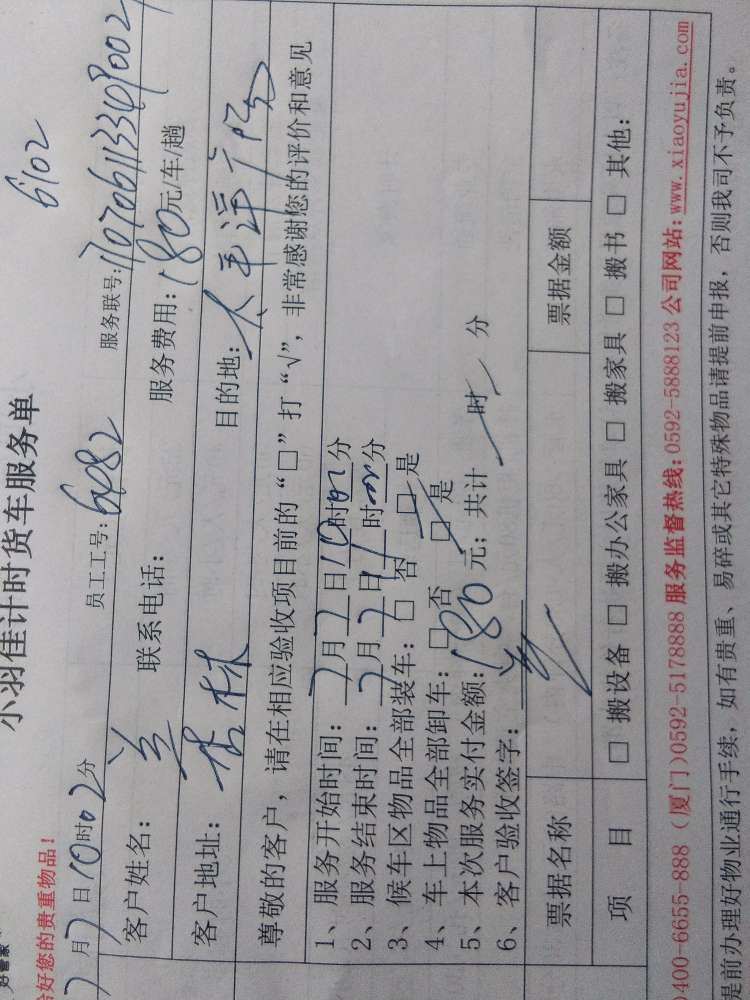 好管家
小羽佳计时货车服务单
6102
给好您的贵重物品！
7月7日10时02分
员工工号：6082
服务联号：170706113349002
客户姓名：兰
联系电话：
服务费用：180元/车/趟
客户地址：杏林
目的地：太平洋广场
尊敬的客户，请在相应验收项目前的“□”打“√”，非常感谢您的评价和意见
1、服务开始时间：7月7日10时02分
2、服务结束时间：7月7日 时 分
3、候车区物品全部装车：□否 □是
4、车上物品全部卸车：□否 □是
5、本次服务实付金额：180元；共计 时 分
6、客户验收签字：兰
票据名称
票据金额
项 目
□ 搬设备 □ 搬办公家具 □ 搬家具 □ 搬书 □ 其他：
400-6655-888（厦门）0592-5178888 服务监督热线：0592-5888123 公司网站：www.xiaoyujia.com
提前办理好物业通行手续，如有贵重、易碎或其它特殊物品请提前申报，否则我司不予负责。